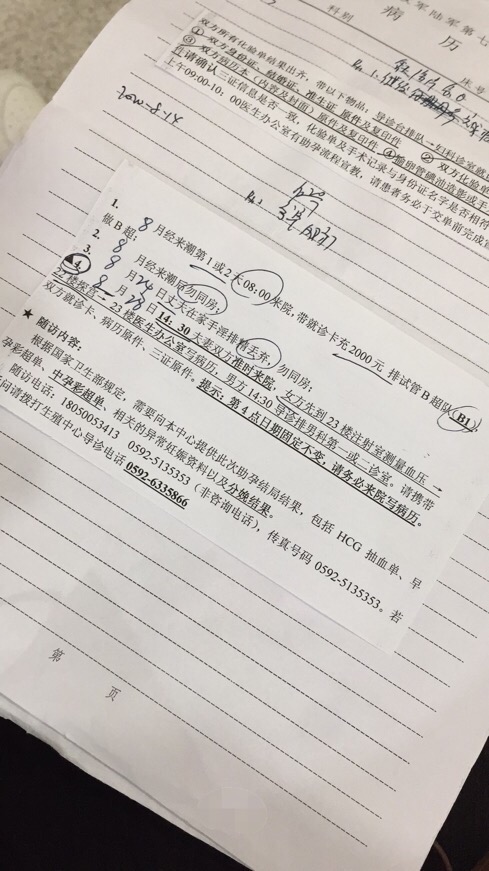 军陆军第七
科别
病 历
床号
双方所有化验单结果出齐，带以下物品，导诊台排队→妇科诊室就
① 双方身份证、结婚证、准生证 原件及复印件 ② 双方化验单
③ 双方病历本（内容及封面）原件及复印件 ④ 输卵管碘油造影或手
请确认三证信息是否一致，化验单及手术记录与身份证名字是否相符
上午09:00-10：00医生办公室有助孕流程宣教，请患者务必于交单前完成
1. 8月经来潮第1或2天08:00来院，带就诊卡充2000元 排试管B超队（B1）
做B超；
2. 8月经来潮后勿同房；
3. 8月24日丈夫在家手淫排精丢弃，勿同房；
4. 8月28日14：30夫妻双方准时来院，女方先到23楼注射室测量血压→
23楼医生办公室写病历，男方14:30导诊排男科第一或二诊室。请携带
双方就诊卡、病历原件、三证原件。提示：第4点日期固定不变，请务必来院写病历。
★ 随访内容：
根据国家卫生部规定，需要向本中心提供此次助孕结局结果，包括HCG抽血单、早
孕彩超单、中孕彩超单、相关的异常妊娠资料以及分娩结果。
随访电话：18050053413 0592-5135353（非咨询电话），传真号码0592-5135353。若
问请拨打生殖中心导诊电话 0592-6335866
第 页